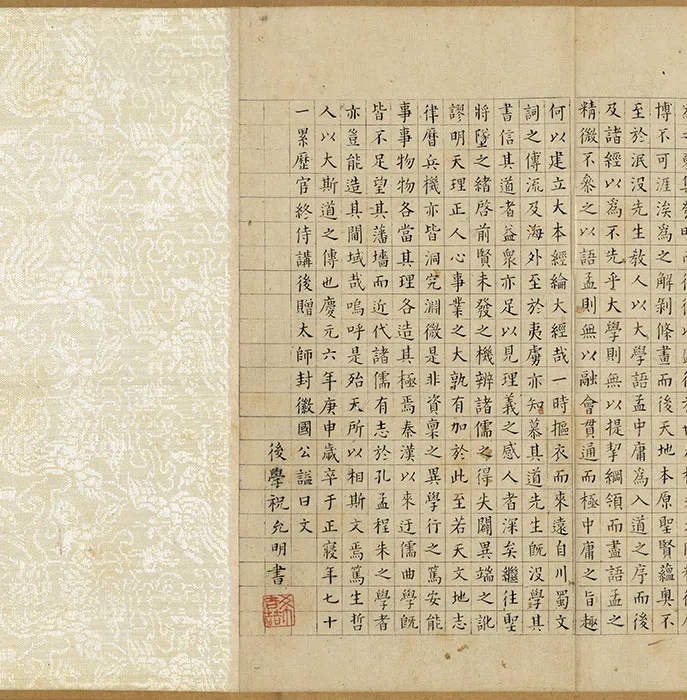 博不可涯涘為之解剝條畫而後天地本原聖賢蘊奧不
至於泯没先生教人以大學語孟中庸為入道之序而後
及諸經以為不先乎大學則無以提挈綱領而盡語孟之
精微不叅之以語孟則無以融會貫通而極中庸之旨趣
何以建立大本經綸大經哉一時摳衣而來遠自川蜀文
詞之傳流及海外至於夷虜亦知慕其道先生既没學其
書信其道者益衆亦足以見理義之感人者深矣繼往聖
將墜之緒啓前賢未發之機辨諸儒之得失闢異端之訛
謬明天理正人心事業之大孰有加於此至若天文地志
律曆兵機亦皆洞究淵微是非資稟之異學行之篤安能
事事物物各當其理各造其極焉秦漢以來迂儒曲學既
皆不足望其藩墻而近代諸儒有志於孔孟程朱之學者
亦豈能造其閫域哉嗚呼是殆天所以相斯文焉篤生哲
人以大斯道之傳也慶元六年庚申歲卒于正寢年七十
一累歷官終侍講後贈太師封徽國公諡曰文
後學祝允明書